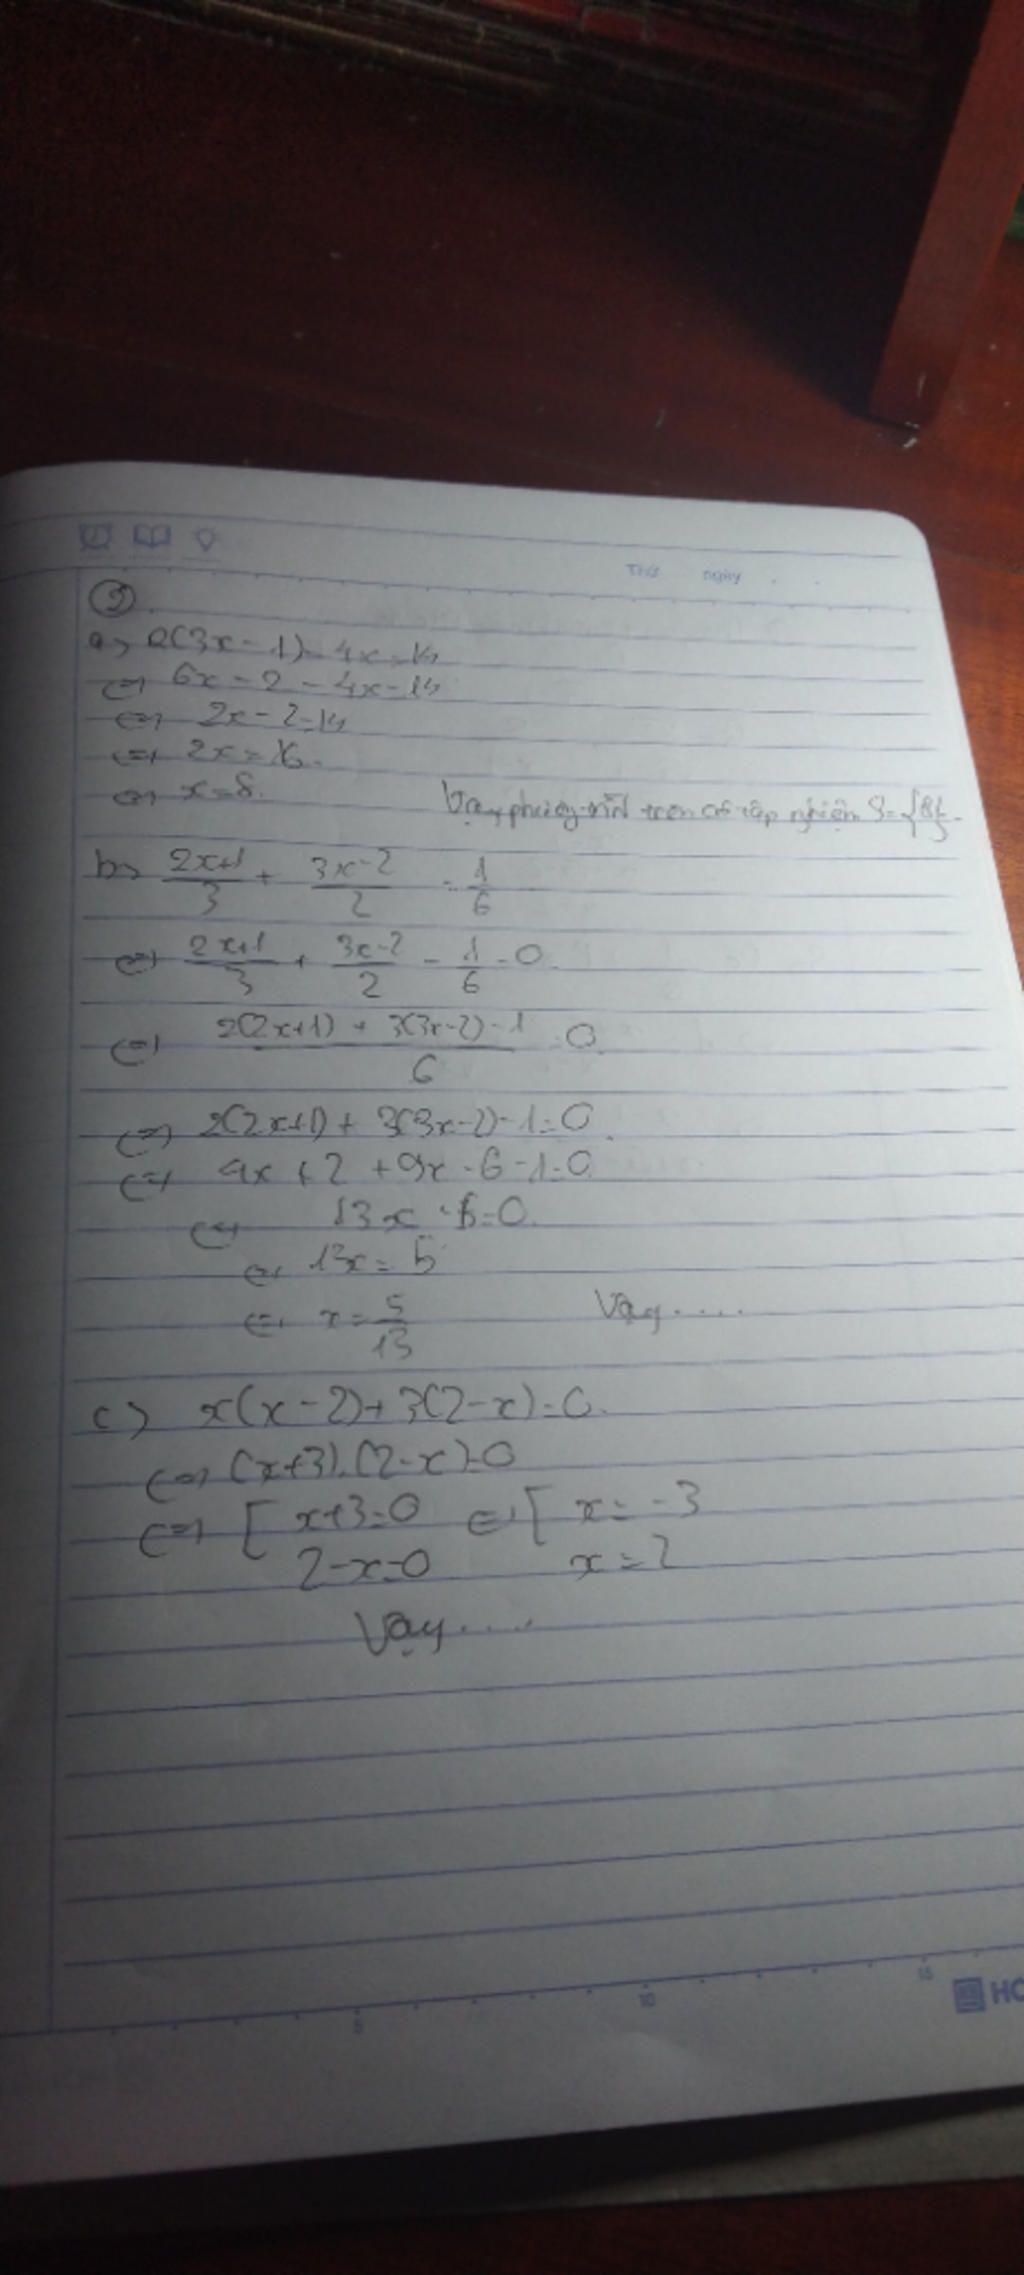 Thứ ngày . .
a) 2(3x-1)-4x=14
<=> 6x-2-4x=14
<=> 2x-2=14
<=> 2x=16.
<=> x=8. Vậy phương trình trên có tập nghiệm S={8}.
b) (2x+1)/3 + (3x-2)/2 = 1/6
<=> (2x+1)/3 + (3x-2)/2 - 1/6 = 0
<=> (2(2x+1) + 3(3x-2)-1)/6 = 0
<=> 2(2x+1) + 3(3x-2)-1=0
<=> 4x+2+9x-6-1=0
<=> 13x-5=0
<=> 13x=5
<=> x=5/13 Vậy....
c) x(x-2)+3(2-x)=0.
<=> (x+3).(2-x)=0
<=> [ x+3=0 <=> [ x=-3
2-x=0 x=2
Vậy....
5 10 15
HO